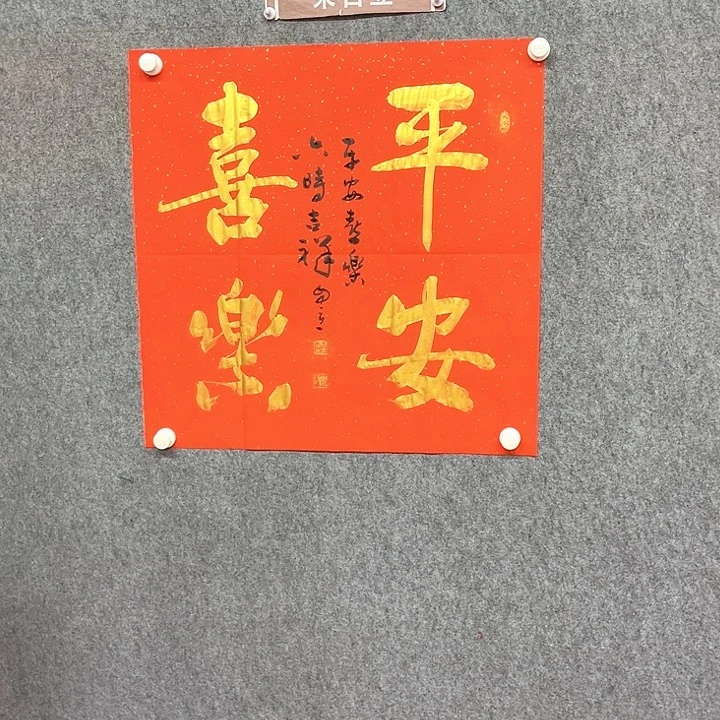 平安
喜樂
平安喜樂
六時吉祥